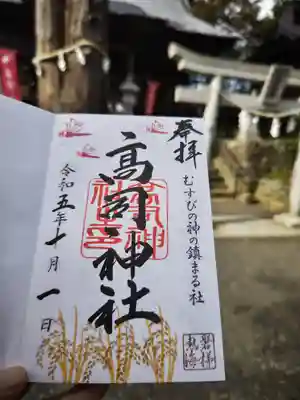 奉拝
むすびの神の鎮まる社
高司神社
令和五年十月一日